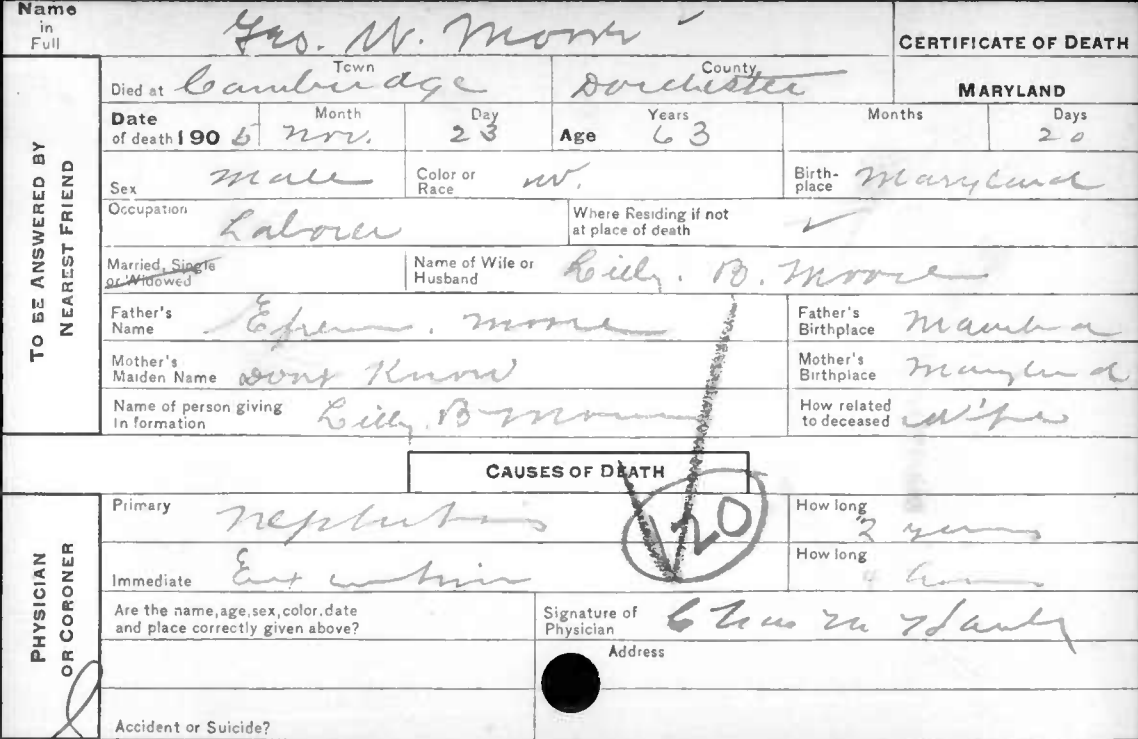 Name in Full Geo. W. Moore
CERTIFICATE OF DEATH
TO BE ANSWERED BY NEAREST FRIEND
Died at Cambridge Town Dorchester County
MARYLAND
Date of death 1905 Month Nov. Day 23 Age Years 63 Months Days 20
Sex Male Color or Race W. Birthplace Maryland
Occupation Laborer Where Residing if not at place of death ✓
Married, Single or Widowed Name of Wife or Husband Lilly. B. Moore
Father's Name Moore Father's Birthplace
Mother's Maiden Name Dont Know Mother's Birthplace Maryland
Name of person giving Information Lilly. B Moore How related to deceased Wife
CAUSES OF DEATH
PHYSICIAN OR CORONER
Primary How long 2 years
120
Immediate How long
Are the name, age, sex, color, date and place correctly given above? Signature of Physician Chas M
Address
Accident or Suicide?